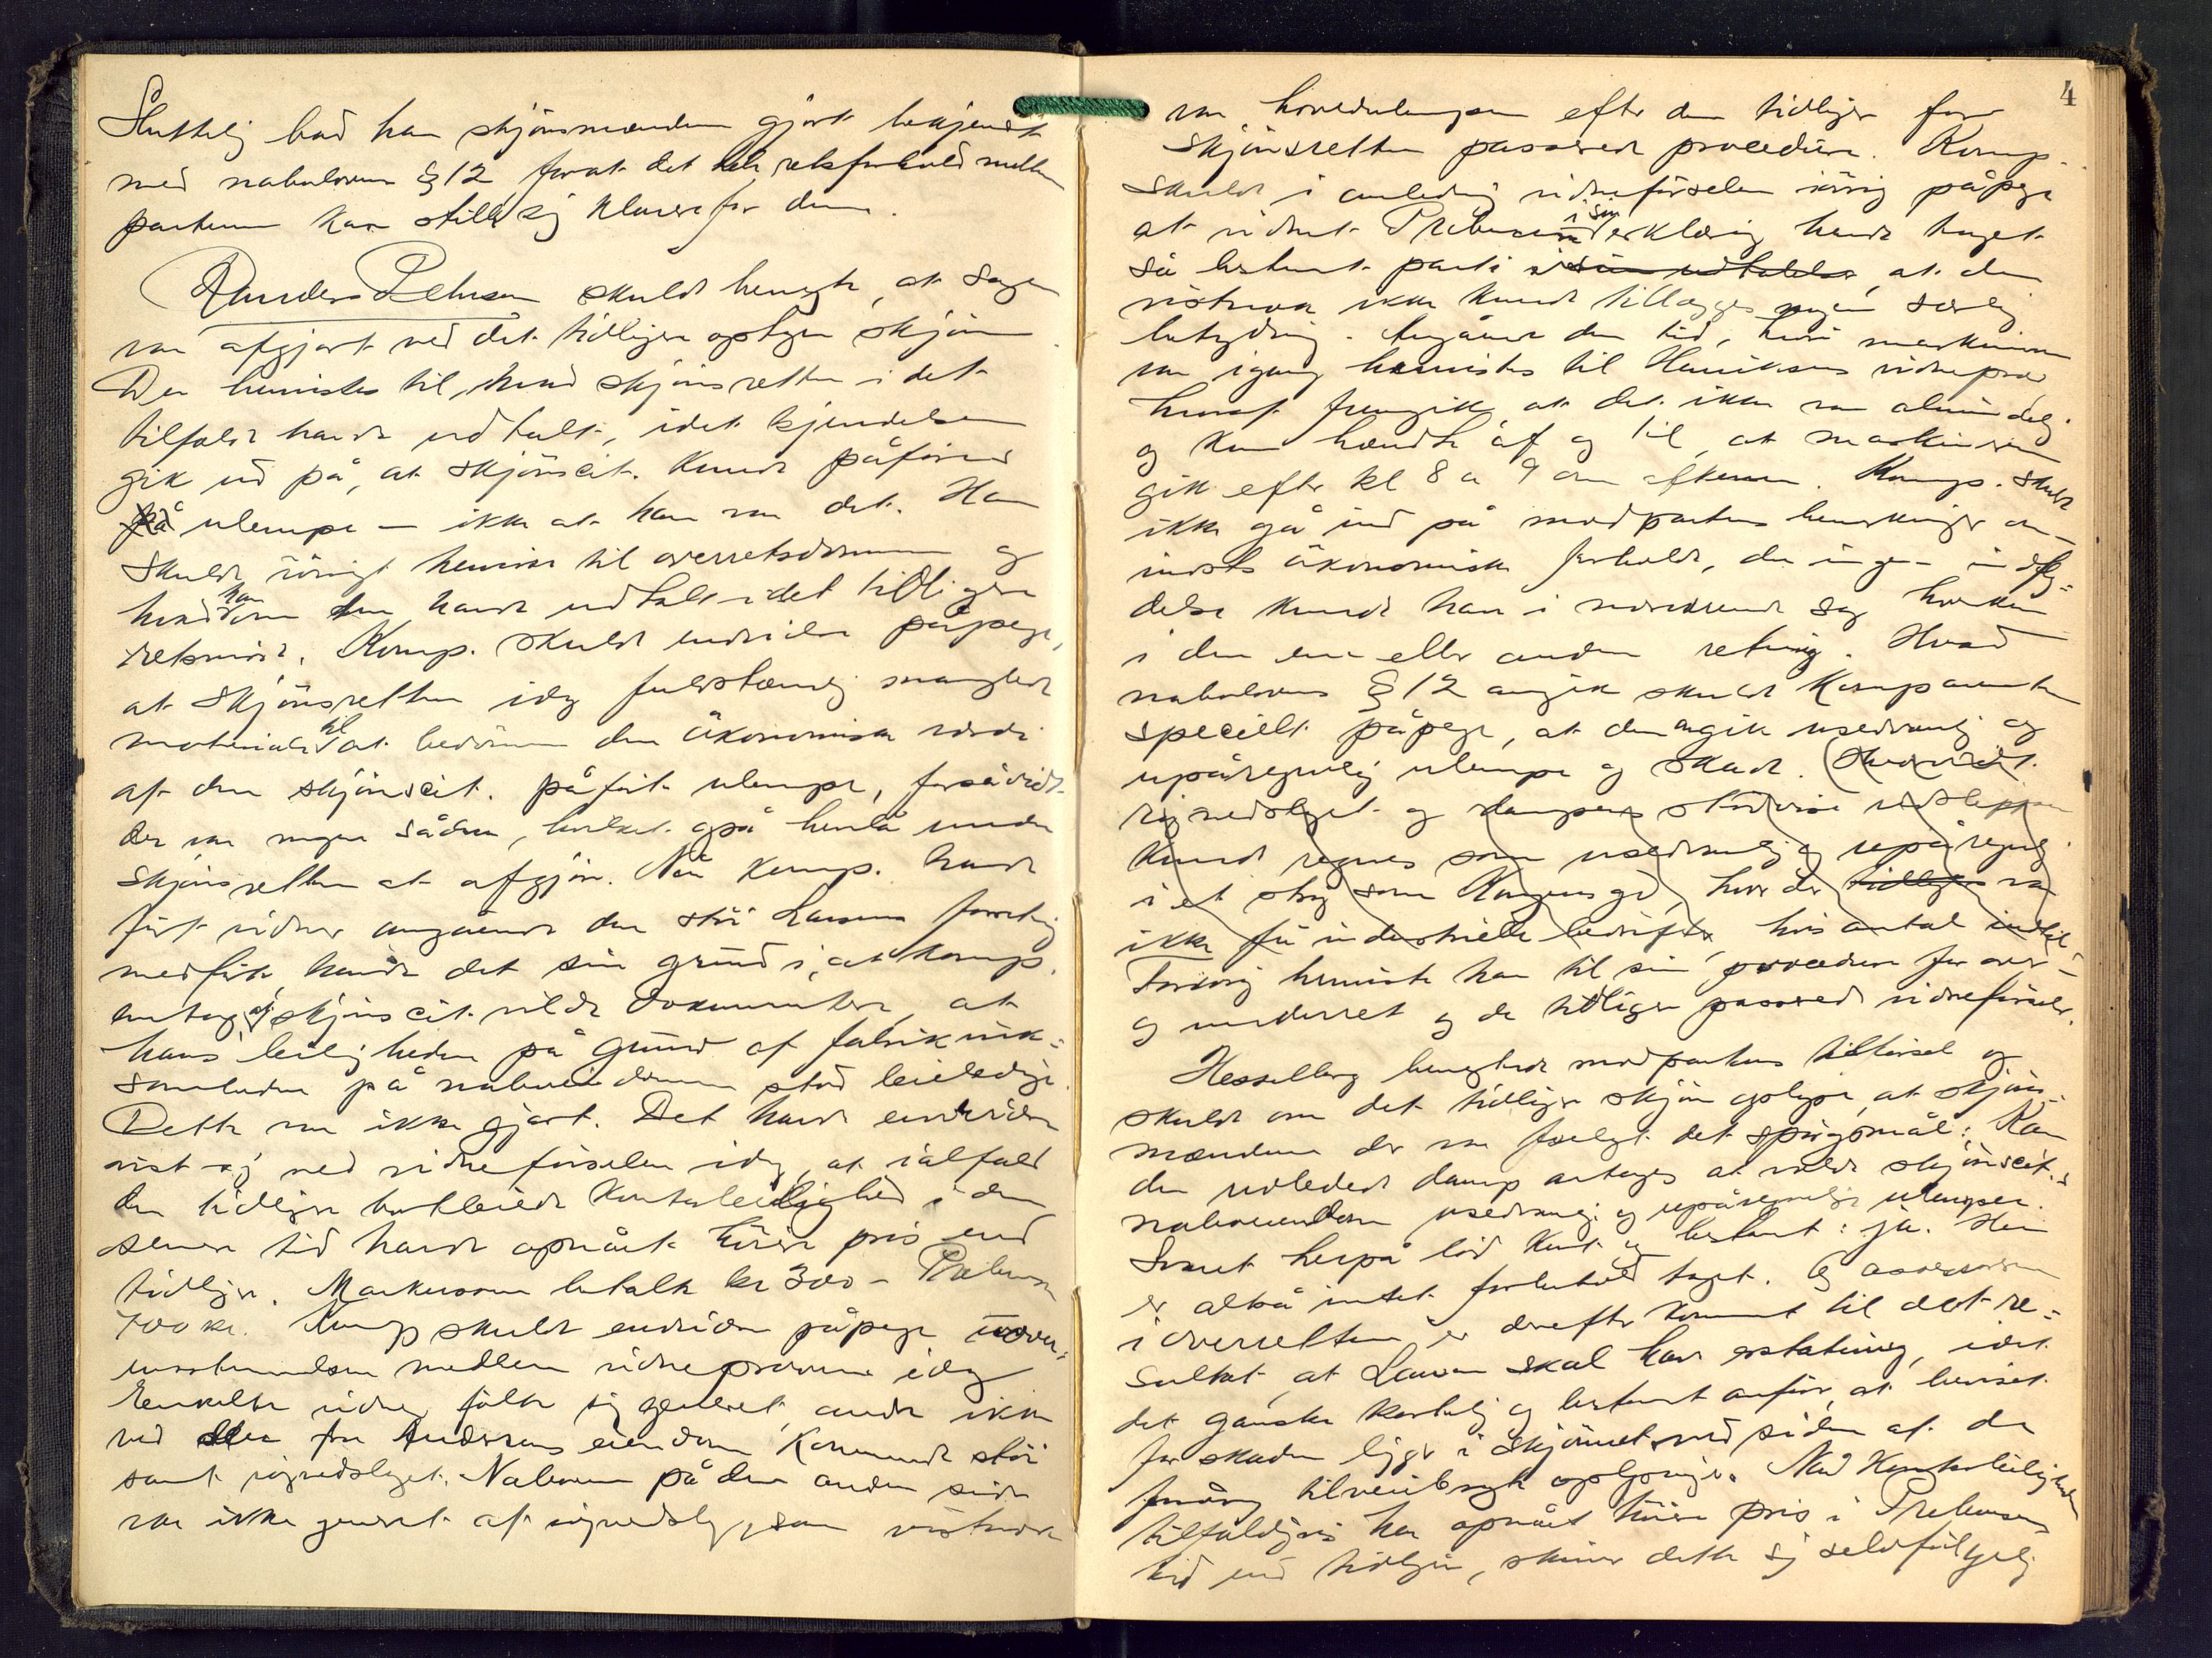 Sluttelig bad han skjönsmændene gjort bekjendt
med nabolovens § 12 forat det hele retsforhold mellem
parterne kan stille sig klarere for dem.
Anders Pedersen skulde benegte, at sagen
var afgjort ved det tidligere optagne skjön
Der henvistes til, hvad skjönsretten i det
tilfælde havde udtalt, idet kjendelsen
gik ud på, at skjönscit. kunde påföres
ulempe – ikke at han var det. Han
skulde iövrigt henvise til overretsdommen og
hvad han havde udtalt i det tidligere
retsmöde. Komp. skulde endvidere påpege,
at skjönsretten idag fuldstændig manglede
materiale til at bedömme den ökonomiske værdi
af den skjönscit. påförte ulempe, forsåvidt
der var nogen sådan, hvilket også henlå under
skjönsretten at afgjöre. Når komp. havde
fört vidner angående den stöi Larsens forretning
medförte, havde det sin grund i, at komp.
antog, at skjönscit. vilde dokumentere, at
hans leiligheder på grund af fabrikvirk-
somheden på naboeiendommen stod leieledige.
Dette var ikke gjort. Det havde endvidere
vist sig ved vidneförselen idag, at ialfald
den tidligere bortleiede kontorleilighed i den
senere tid havde opnået höiere pris end
tidligere. Markussen betalte kr 300 – Prebensen
700 kr. Komp skulde endvidere påpege uover-
ensstemmelsen mellem vidneprovene idag
Enkelte vidner fölte sig generet, andre ikke
ved den fra Andersens eiendom kommende stöi
samt rögnedslaget. Naboerne på den anden side
var ikke generet af rögnedslag, som vistnok
4
var hovedulempen efter den tidligere for
skjönsretten passerede procedure. Komp.
skulde i anledning vidneförselen iövrig påpege
at vidnet Prebensen i sin erklæring havde taget
så bestemt parti at den
vistnok ikke kunde tillægges nogen særlig
betydning. Angående den tid, hvori maskinen
var igang henvistes til Henriksens vidneprov
hvoraf fremgik, at det ikke var almindelig
og kun hændte af og til, at maskinen
gik efter kl 8 a 9 om aftenen. Komp. skulde
ikke gå ind på modpartens bemerkninger om
ökonomiske forholde, der ingen indfly-
delse kunde have i nærværende sag hverken
i den ene eller anden retning. Hvad
nabolovens § 12 angik skulde komparenten
specielt påpege, at den angik usedvanlig og
upåregnelig ulempe og skade.
rögnedslaget og dampens
kunde regnes som usedvanlig og upåregnelig
i et strög som Kongensgd, hvor der tidligere var
ikke få industrielle bedrifter, hvis antal
Forövrig henviste han til sin procedure for over-
og underret og de tidligere passerede vidneförsler.
Hesselberg benegtede modpartens tilförsel og
skulde om det tidligere skjön oplyse, at skjöns-
mændene der var forelagt det spörgsmål: Kan
den udledede damp antages at volde skjönscit.s
naboeiendom usedvanlig og upåregnelige ulemper.
Svaret herpå löd kort og bestemt: ja. Her
er altså intet forbehold taget. Og assessorerne
i overretten er derefter kommet til det re-
sultat, at Larsen skal have erstatning, idet
det ganske kortelig og bestemt anföres, at beviset
for skaden ligger i skjönnet ved siden af de
forövrig tilveiebragte oplysninger. Når kontorleiligheden
tilfældigvis har opnået höiere pris i Prebensens
tid end tidligere, skriver dette sig selvfölgelig